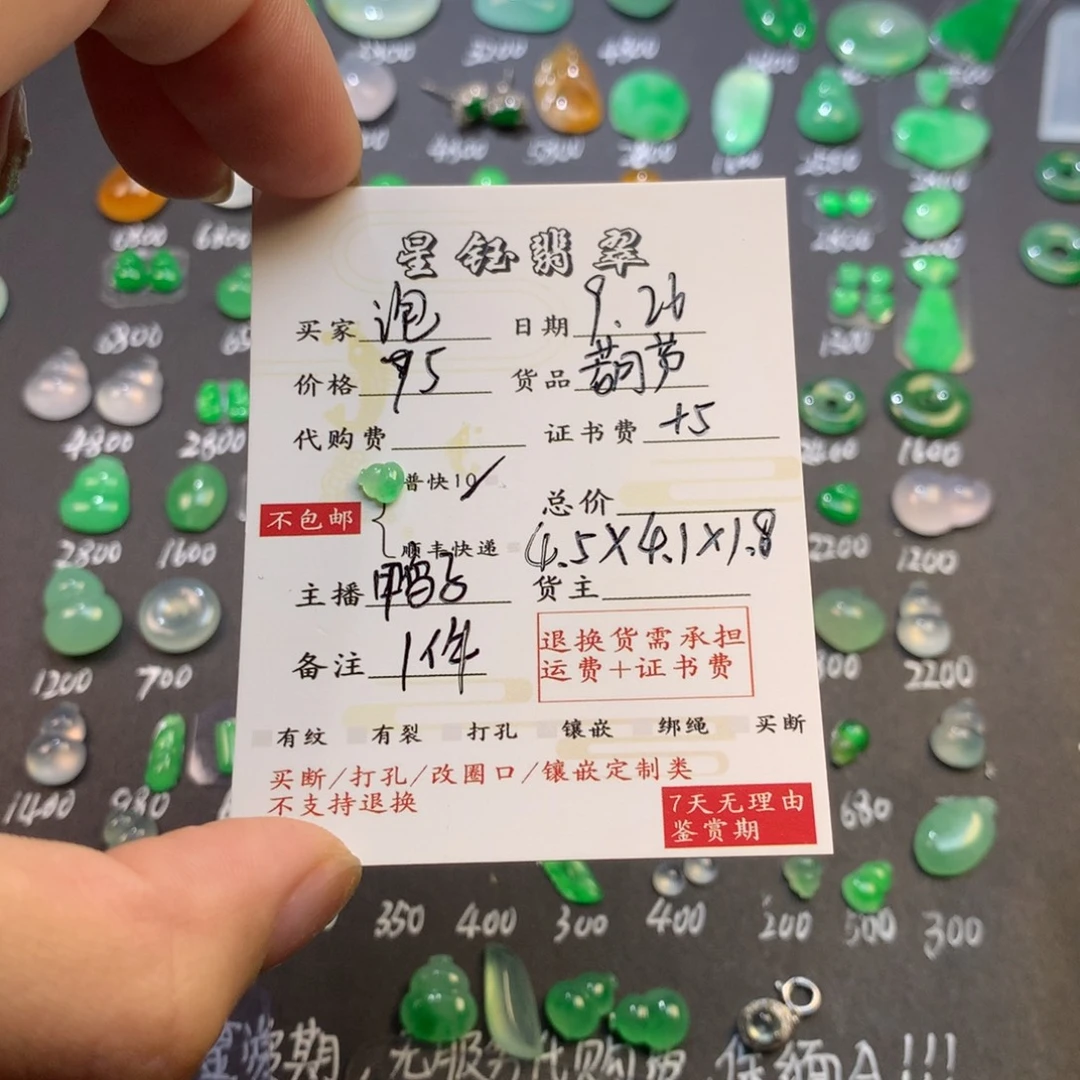 3800 3200 4800
4400 3800 2800 1600 2800
1800 6800 2800
6800 1300
4800 2800 1600
2800 1600 2200 1200
1200 700 2200
1400 980 680
星钰翡翠
买家 泡 日期 9.26
价格 95 货品 葫芦
代购费 证书费 +5
普快10
不包邮 总价
顺丰快递 4.5X4.1X1.8
主播 鸭子 货主
备注 1件 退换货需承担
运费+证书费
有纹 有裂 打孔 镶嵌 绑绳 买断
买断/打孔/改圈口/镶嵌定制类
不支持退换
7天无理由
鉴赏期
350 400 300 400 200 500 300
鉴赏期,无服务代购费 保缅A!!!